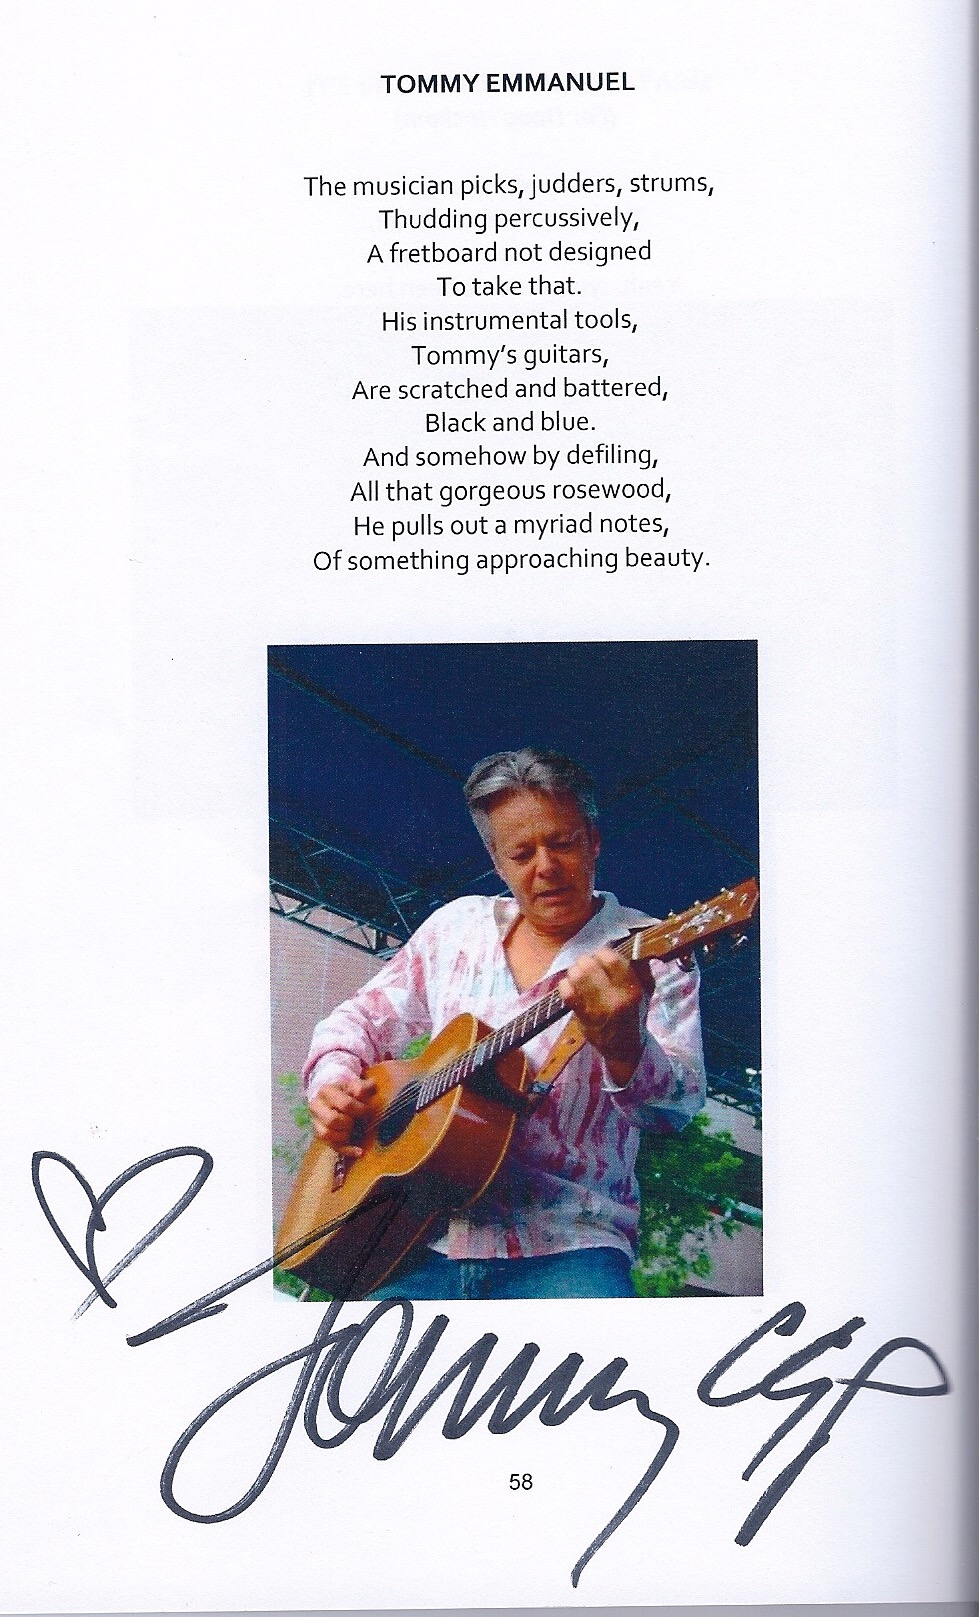 TOMMY EMMANUEL
The musician picks, judders, strums,
Thudding percussively,
A fretboard not designed
To take that.
His instrumental tools,
Tommy's guitars,
Are scratched and battered,
Black and blue.
And somehow by defiling,
All that gorgeous rosewood,
He pulls out a myriad notes,
Of something approaching beauty.
Tommy CGP
58